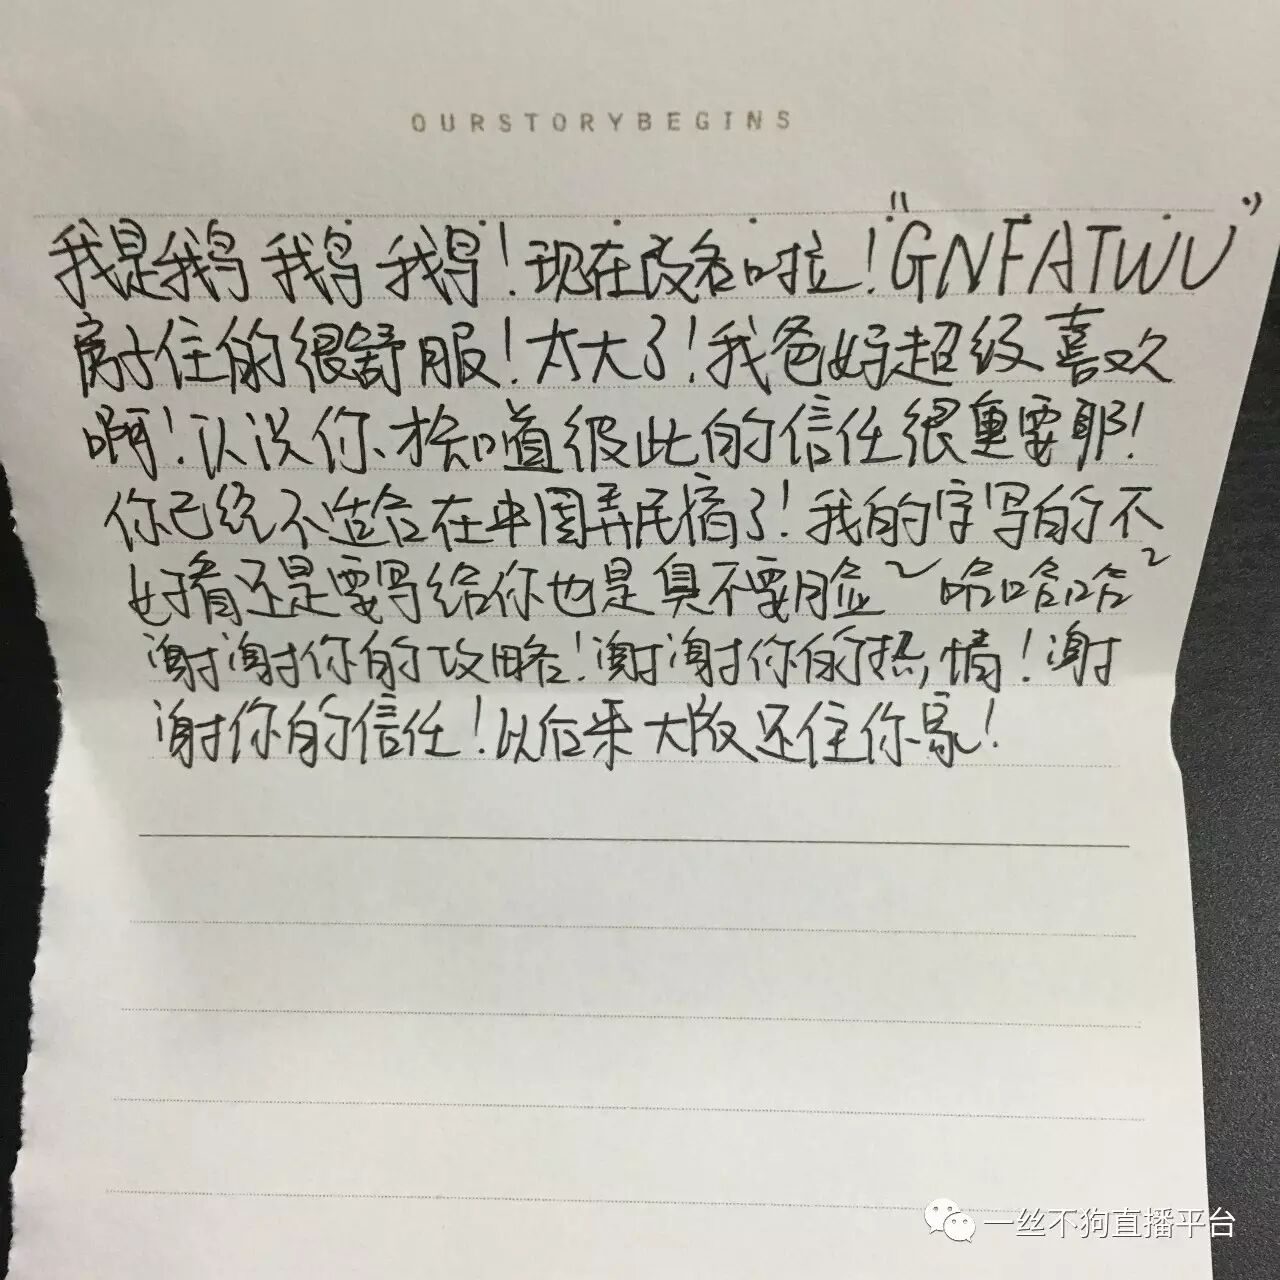 OURSTORYBEGINS
我是鹅鹅鹅!现在改名啦!"GNFATWU"
房子住的很舒服!太大了!我爸妈超级喜欢
啊!认识你才知道彼此的信任很重要耶!
你已经不适合在中国弄民宿了!我的字写的不
好看还是要写给你也是真不要脸~哈哈哈~
谢谢你的攻略!谢谢你的热情!谢
谢你的信任!以后来大阪还住你家!
一丝不狗直播平台